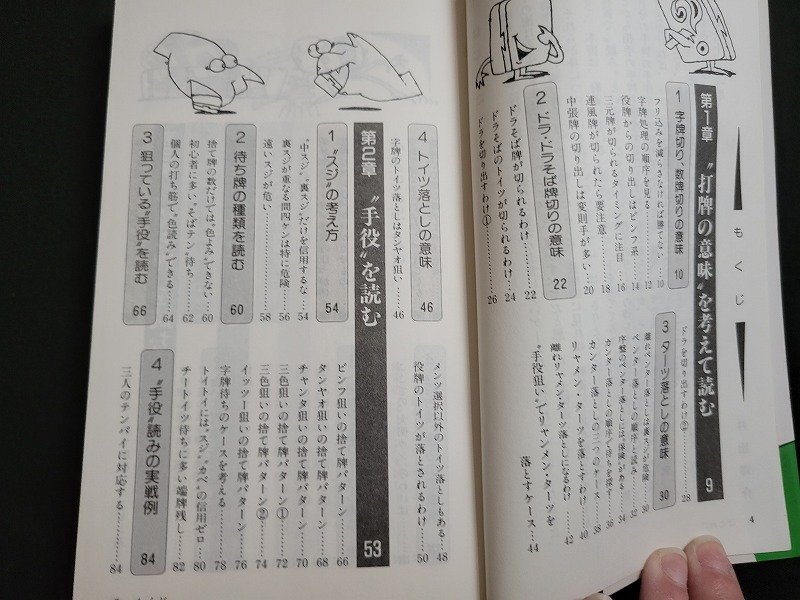 もくじ
第1章 〝打牌の意味〟を考えて読む 9
1 字牌切り、数牌切りの意味 10
フリ込みを減らさなければ勝てない 10
字牌処理の順序を見る 12
役牌からの切り出しはピンフ系 14
三元牌が切られるタイミングに注目 16
連風牌が切られたら要注意 18
中張牌の切り出しは変則手が多い 20
2 ドラ・ドラそば牌切りの意味 22
ドラそば牌が切られるわけ 22
ドラそばのトイツが切られるわけ 24
ドラを切り出すわけ① 26
ドラを切り出すわけ② 28
3 ターツ落としの意味 30
離れペンター落としは裏スジが危険 30
ペンター落としの順序と読み 32
序盤のペンター落としには〝保険〟がある 34
カンター落としの順序で待ちを探す 36
カンター落としの三つのケース 38
リャメン・ターツを落とすわけ 40
離れリャメン・ターツ落としになるわけ 42
〝手役狙い〟でリャンメン・ターツを
落とすケース 44
4
4 トイツ落としの意味 46
字牌のトイツ落としはタンヤオ狙い 46
メンツ選択以外のトイツ落としもある 48
役牌のトイツが落とされるわけ 50
第2章 〝手役〟を読む 53
1 〝スジ〟の考え方 54
〝中スジ〟〝裏スジ〟だけを信用するな 54
裏スジが重なる間四ケンは特に危険 56
遠いスジが危い 58
2 待ち牌の種類を読む 60
捨て牌の数だけでは〝色よみ〟できない 60
初心者に多い〝そばテン〟待ち 62
個人の打ち筋で〝色読み〟できる 64
3 狙っている〝手役〟を読む 66
ピンフ狙いの捨て牌パターン 66
タンヤオ狙いの捨て牌パターン 68
チャンタ狙いの捨て牌パターン 70
三色狙いの捨て牌パターン① 72
三色狙いの捨て牌パターン② 74
イッツー狙いの捨て牌パターン 76
字牌待ちのケースを考える 78
トイトイには〝スジ〟〝カベ〟の信用ゼロ 80
チートイツ待ちに多い端牌残し 82
4 〝手役〟読みの実戦例 84
三人のテンパイに対応する 84